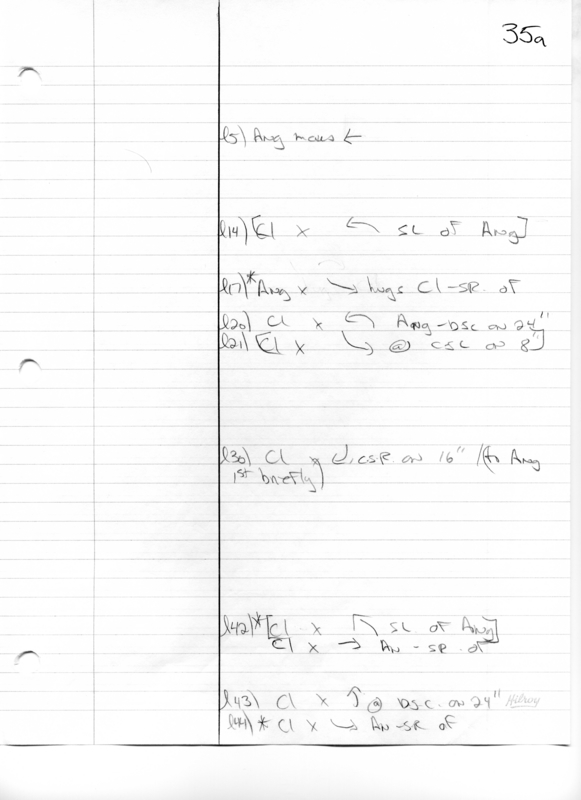 35a
l5) Ang moves ←
l14) [Cl x ↖ SL of Ang]
l17)* Ang x ↘ hugs Cl-SR of
l20) Cl x ↖ Ang-DSC on 24"
l21) [Cl x ↘ @ CSC on 8"]
l30) Cl x ↓ CSR on 16" / (to Ang
1st briefly)
l42)* [Cl x ↖ SL of Ang]
Cl x → An - SR of
l43) Cl x ↑ @ DSC on 24"
Hilroy
l44)* Cl x ↘ An-SR of